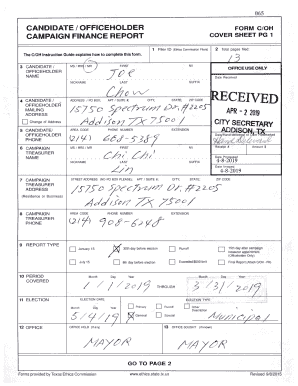 865
CANDIDATE / OFFICEHOLDER
CAMPAIGN FINANCE REPORT
FORM C/OH
COVER SHEET PG 1
The C/OH Instruction Guide explains how to complete this form.
1 Filer ID (Ethics Commission Filers)
2 Total pages filed:
13
3 CANDIDATE / OFFICEHOLDER NAME
MS / MRS / MR FIRST MI
Joe
NICKNAME LAST SUFFIX
Chow
OFFICE USE ONLY
Date Received
RECEIVED
APR - 2 2019
CITY SECRETARY
ADDISON, TX
4 CANDIDATE / OFFICEHOLDER MAILING ADDRESS
Change of Address
ADDRESS / PO BOX; APT / SUITE #; CITY; STATE; ZIP CODE
15750 Spectrum Dr. #2205
Addison TX 75001
5 CANDIDATE / OFFICEHOLDER PHONE
AREA CODE PHONE NUMBER EXTENSION
(214) 668-5389
Receipt # Amount $
6 CAMPAIGN TREASURER NAME
MS / MRS / MR FIRST MI
Chi Chi
NICKNAME LAST SUFFIX
Lin
Date Processed
4-8-2019
Date Imaged
4-8-2019
7 CAMPAIGN TREASURER ADDRESS
(Residence or Business)
STREET ADDRESS (NO PO BOX PLEASE); APT / SUITE #; CITY; STATE; ZIP CODE
15750 Spectrum Dr. #2205
Addison TX 75001
8 CAMPAIGN TREASURER PHONE
AREA CODE PHONE NUMBER EXTENSION
(214) 908-6248
9 REPORT TYPE
January 15
30th day before election
Runoff
15th day after campaign treasurer appointment (Officeholder Only)
July 15
8th day before election
Exceeded $500 limit
Final Report (Attach C/OH - FR)
10 PERIOD COVERED
Month Day Year
1/1/2019
THROUGH
Month Day Year
3/31/2019
11 ELECTION
ELECTION DATE
Month Day Year
5/4/2019
ELECTION TYPE
Primary
Runoff
Other Description
General
Special
Municipal
12 OFFICE
OFFICE HELD (if any)
MAYOR
13 OFFICE SOUGHT (if known)
MAYOR
GO TO PAGE 2
Forms provided by Texas Ethics Commission
www.ethics.state.tx.us
Revised 9/8/2015